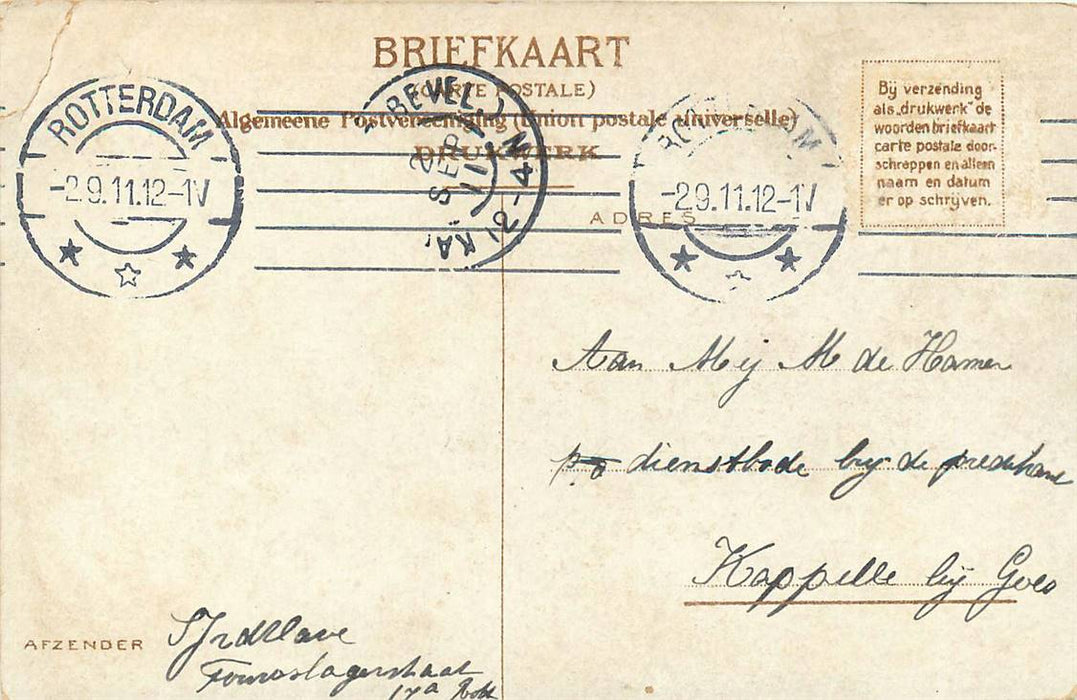 BRIEFKAART
(CARTE POSTALE)
Algemeene Postvereeniging (Union postale universelle)
DRUKWERK
ADRES
Bij verzending
als „drukwerk" de
woorden briefkaart
carte postale door-
schrappen en alleen
naam en datum
er op schrijven.
ROTTERDAM
-2.9.11.12-1V
BEVEL.
2 SEP 11
12-4N
KA
ROTTERDAM
-2.9.11.12-1V
Aan Mej M de Hamer
dienstbode bij de predikant
Kappelle bij Goes
AFZENDER
17a Rott